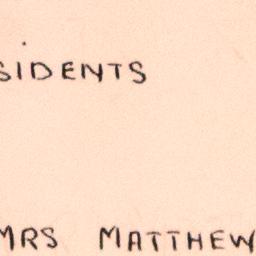 SIDENTS
MRS MATTHEW